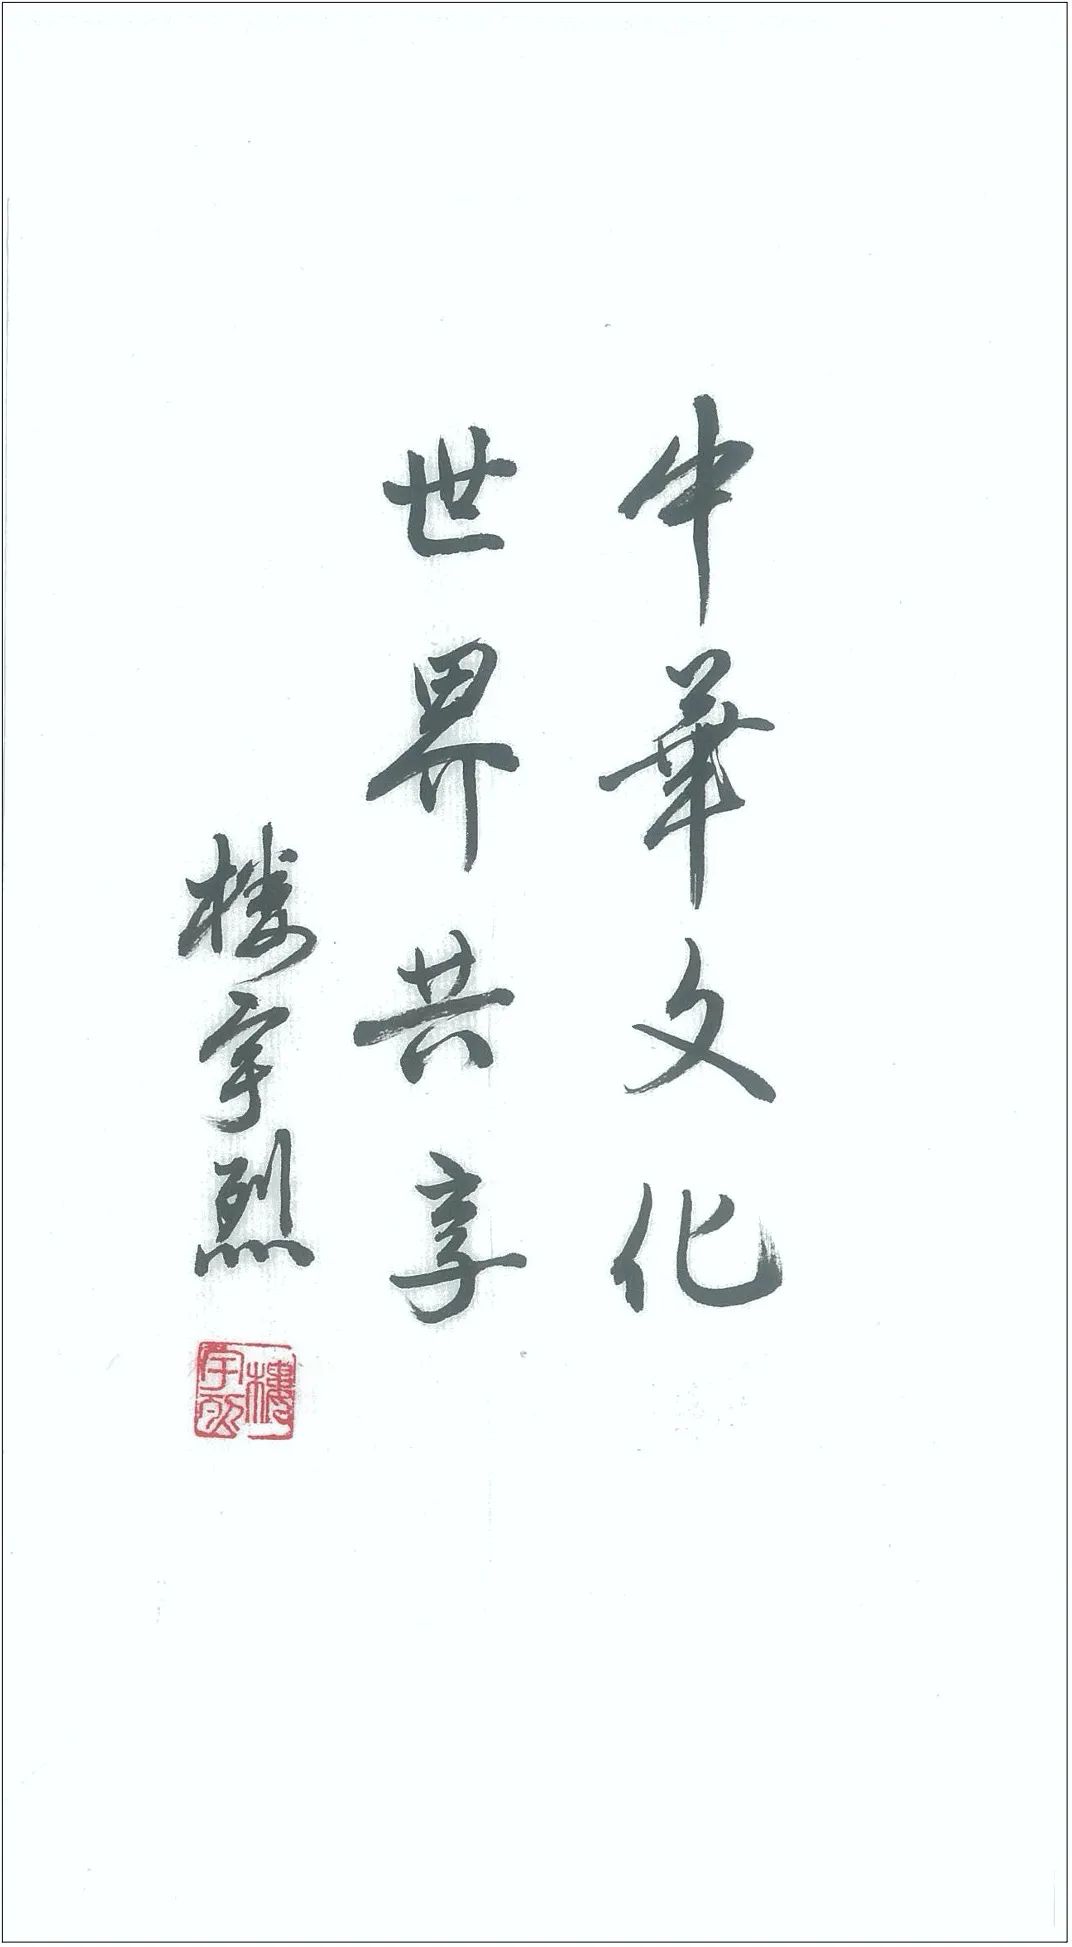 中華文化
世界共享
楼宇烈
樓宇烈